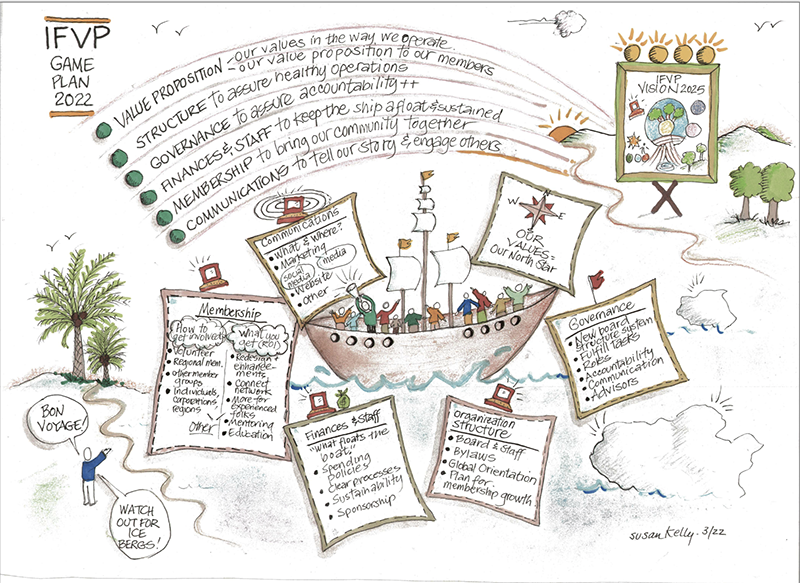 IFVP
GAME
PLAN
2022
VALUE PROPOSITION - our values in the way we operate
- our value proposition to our members
STRUCTURE to assure healthy operations
GOVERNANCE to assure accountability ++
FINANCES & STAFF to keep the ship afloat & sustained
MEMBERSHIP to bring our community together
COMMUNICATIONS to tell our story & engage others
IFVP
VISION 2025
Communications
• What & Where?
• Marketing
social media
media
• Website
• Other
W N E
S
OUR
VALUES =
Our North Star
Membership
How to
get involved
• Volunteer
• Regional mem.
• other member
groups
• Individuals,
corporations
regions
Other
What you
get (ROI)
• Redesign +
enhance-
ments
• Connect
network
• More for
experienced
folks
• Mentoring
• Education
Governance
• New board
structure system
• Fulfill tasks
• Roles
• Accountability
• Communication
• Advisors
Finances & Staff
"What floats the
boat"
• Spending
policies
• Clear processes
• Sustainability
• Sponsorship
Organization
Structure
• Board & Staff
• Bylaws
• Global Orientation
• Plan for
membership growth
BON
VOYAGE!
WATCH
OUT FOR
ICE
BERGS!
susan Kelly. 3/22